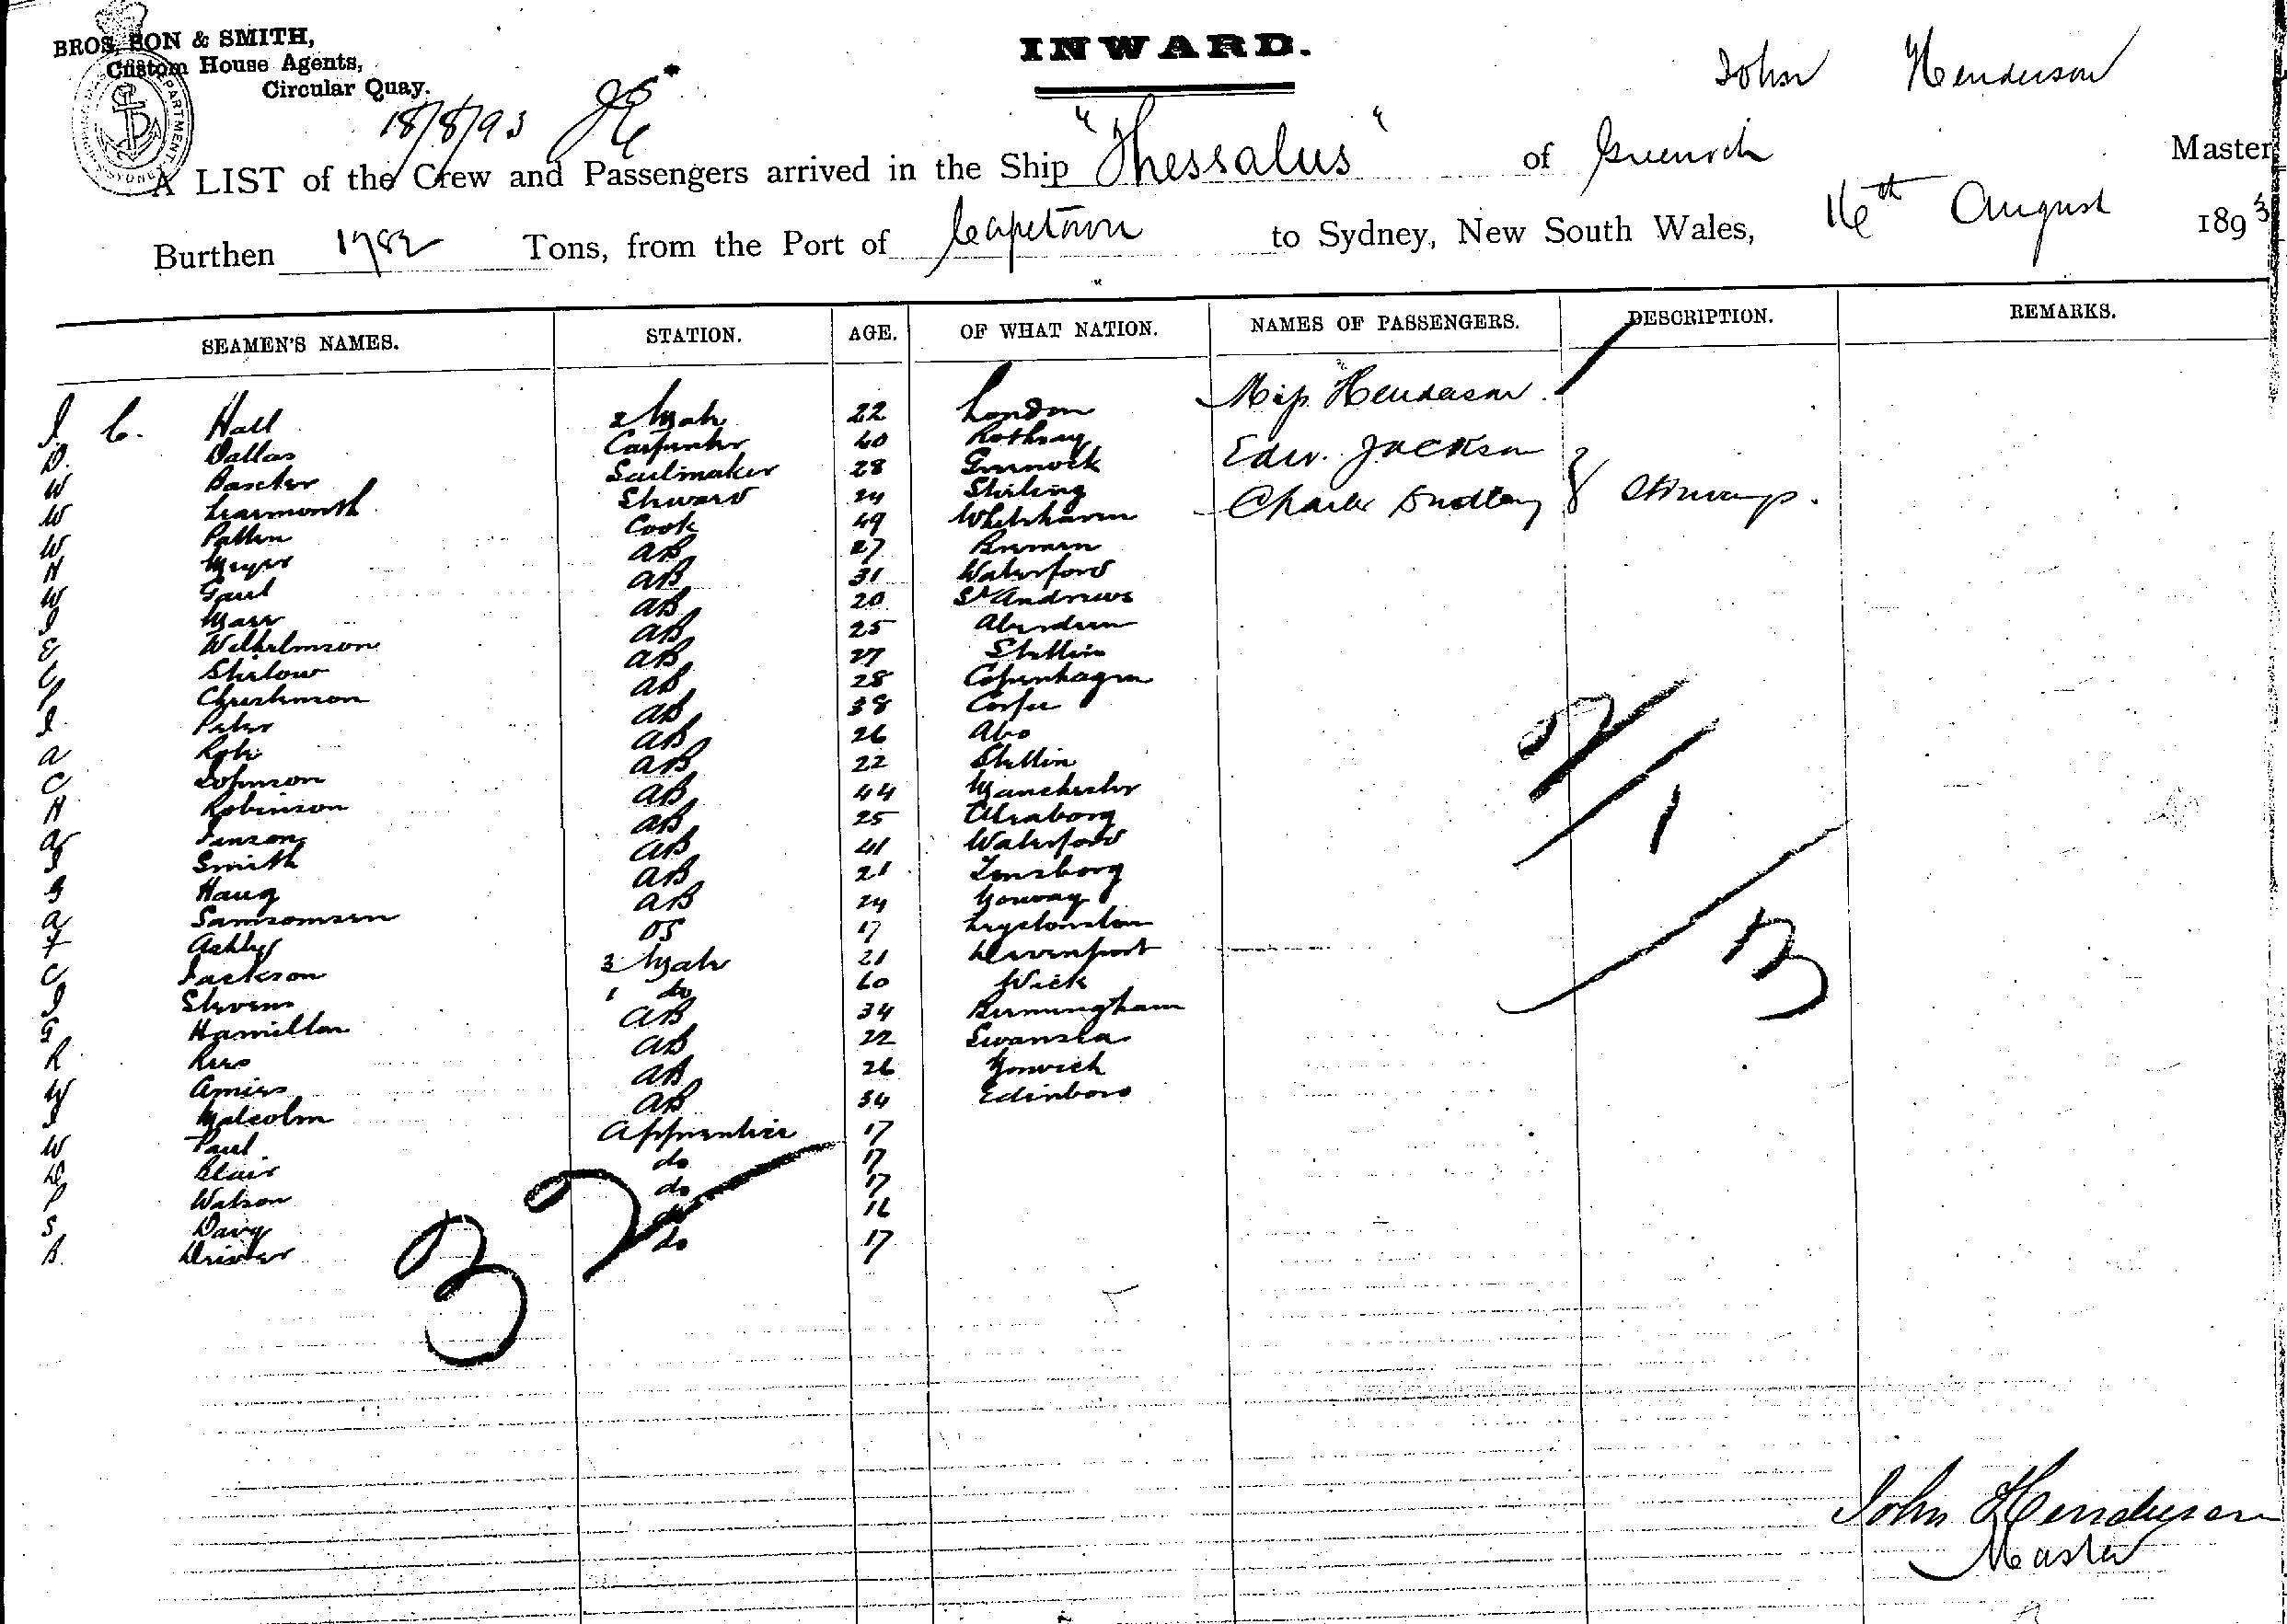 BROS, SON & SMITH,
Custom House Agents,
Circular Quay.
INWARD.
18/8/93
John Henderson
A LIST of the Crew and Passengers arrived in the Ship "Thessalus" of Greenock Master
Burthen 1782 Tons, from the Port of Capetown to Sydney, New South Wales, 16th August 1893
SEAMEN'S NAMES. STATION. AGE. OF WHAT NATION. NAMES OF PASSENGERS. DESCRIPTION. REMARKS.
J. C. Hall 2 Mate 22 London Miss Henderson
D. Dallas Carpenter 60 Rothsay Edw. Jackson
W Baxter Sailmaker 28 Greenock
W Learmonth Steward 24 Stirling Charles Dudley Stowaways.
W Patten Cook 49 Whitehaven
H Meyer AB 27 Bremen
W Gaul AB 31 Waterford
J Marr AB 20 St Andrews
E Wilhelmson AB 25 Aberdeen
Shirlow AB 27 Stettin
P Christenson AB 28 Copenhagen
J. Peter AB 38 Corfu
A AB 26 Abo
C Johnson AB 22 Stettin
H Robinson AB 44 Manchester
A Janson AB 25
J Smith AB 41 Waterford
G Haug AB 21
A Samsomsen AB 24 Norway
F Ashley OS 17
C Jackson 3 Mate 21 Davenport
J Stevens 1 do 60 Wick
G Hamilton AB 34 Birmingham
R Rees AB 22 Swansea
W Amies AB 26 Norwich
J Malcolm AB 34 Edinboro
W Paul Apprentice 17
D Blair do 17
P Watson do 17
S Davy do 16
B. Driver do 17
32
2/
1
3
John Henderson
Master